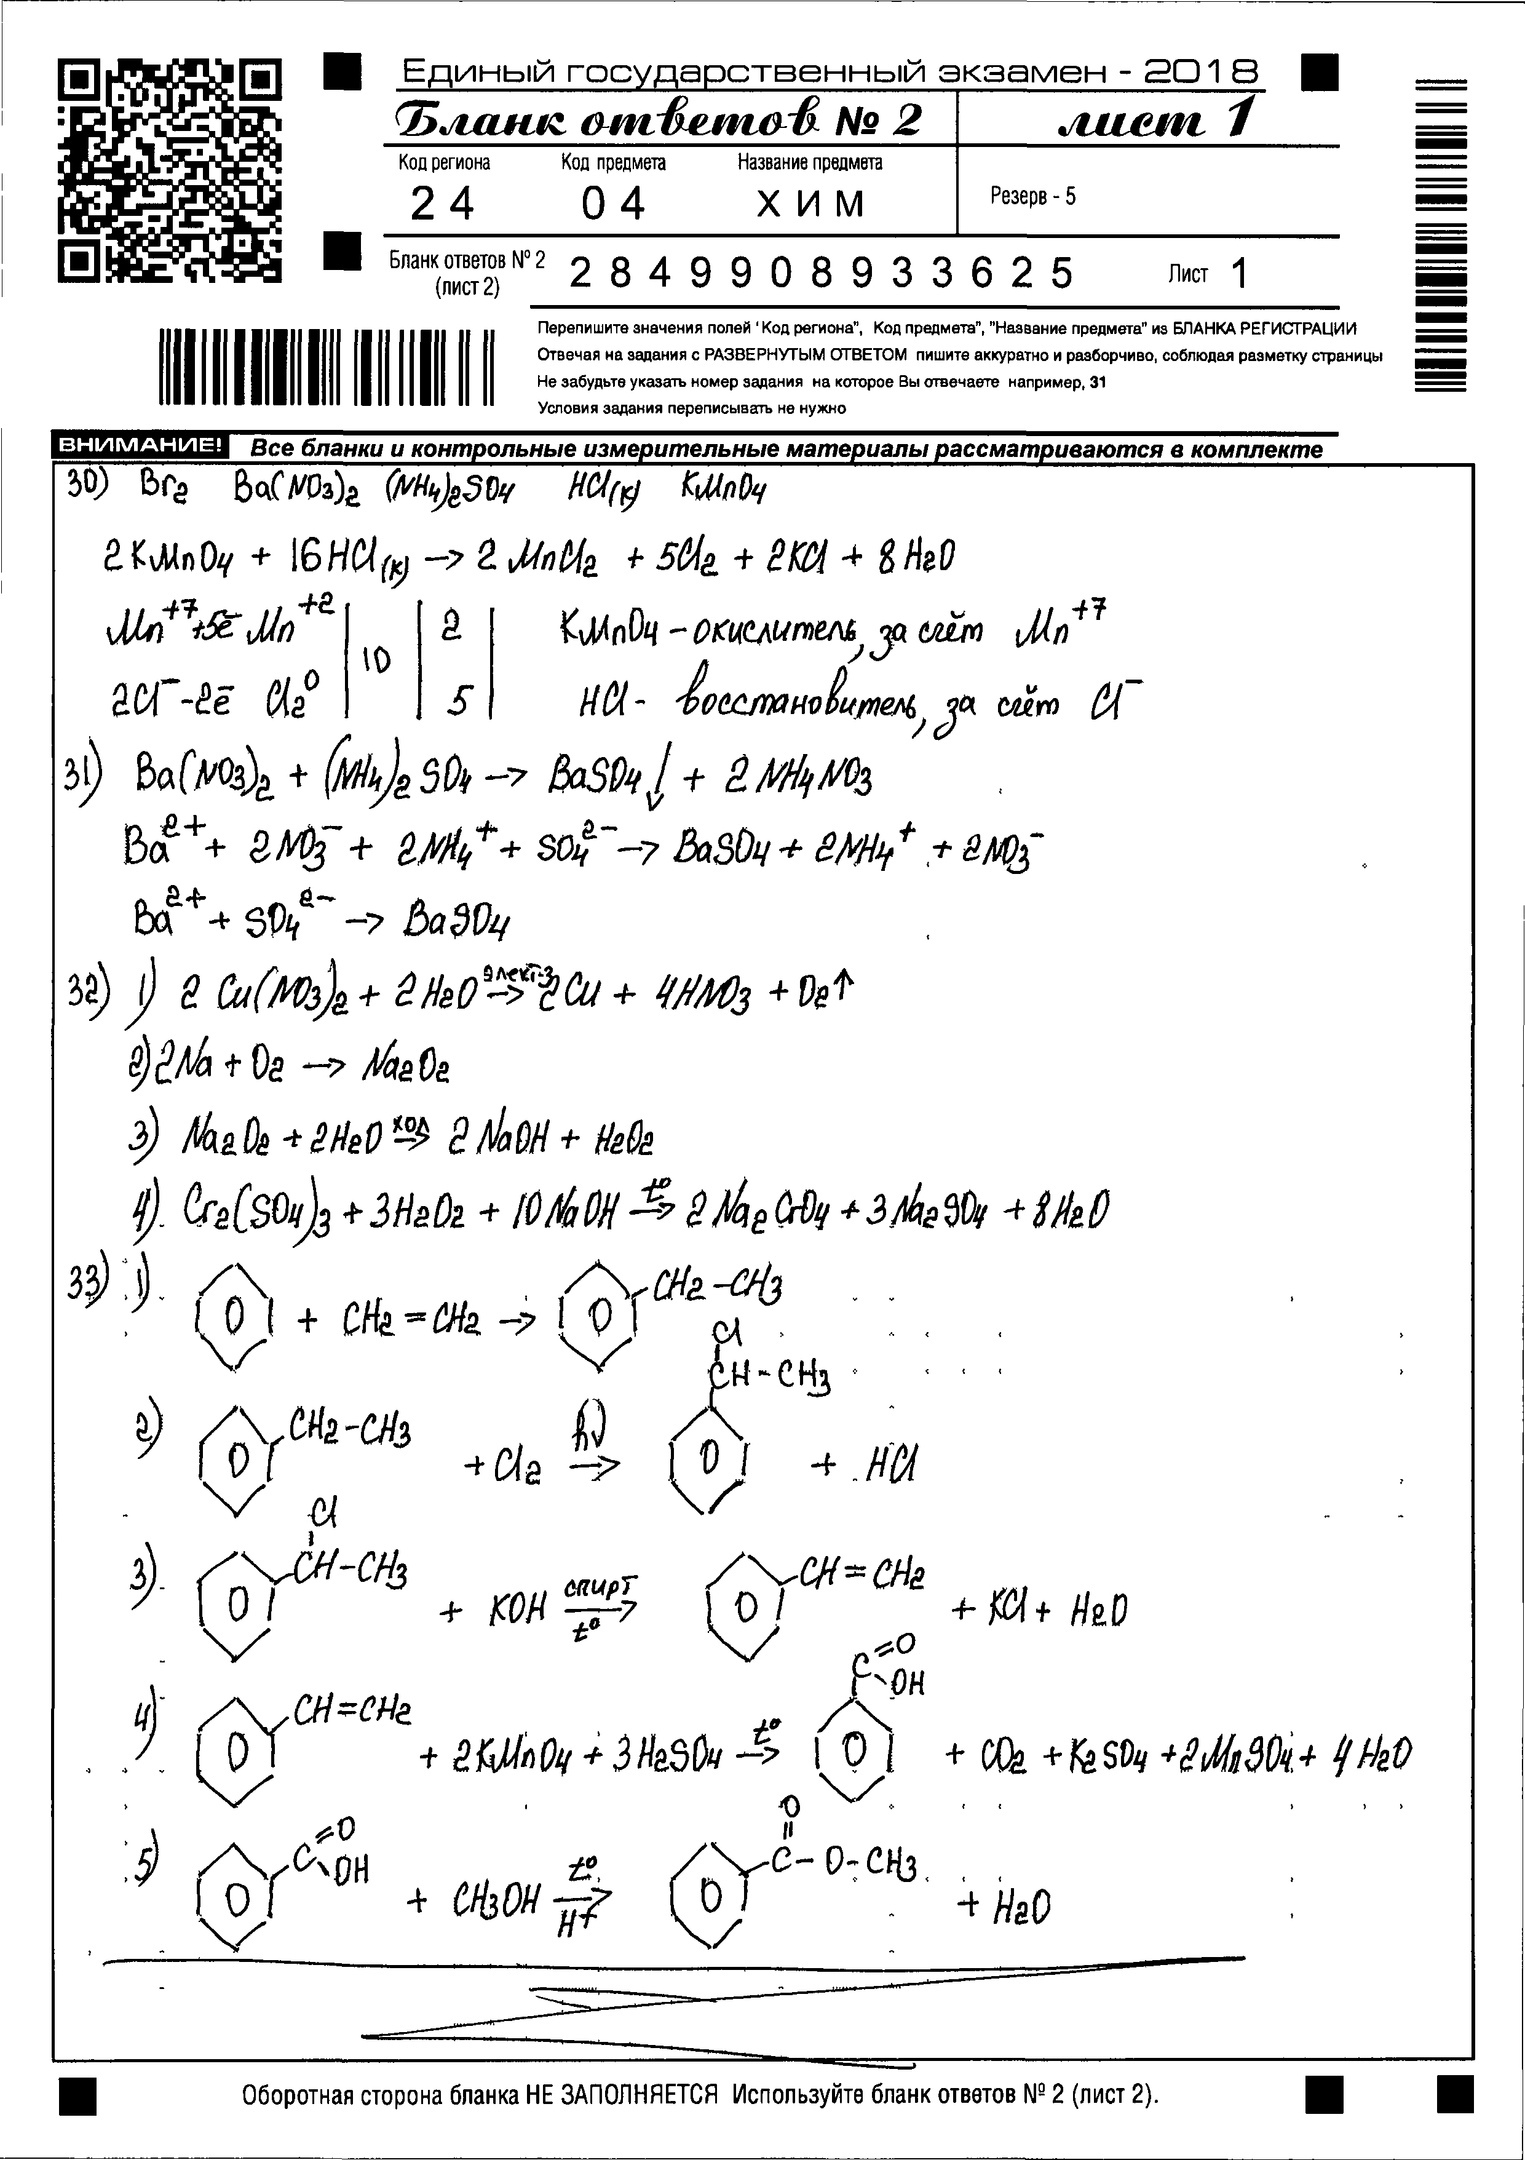 Единый государственный экзамен - 2018
Бланк ответов № 2
лист 1
Код региона Код предмета Название предмета
24 04 ХИМ
Резерв - 5
Бланк ответов № 2 (лист 2)
2849908933625
Лист 1
Перепишите значения полей "Код региона", Код предмета", "Название предмета" из БЛАНКА РЕГИСТРАЦИИ
Отвечая на задания с РАЗВЕРНУТЫМ ОТВЕТОМ пишите аккуратно и разборчиво, соблюдая разметку страницы
Не забудьте указать номер задания на которое Вы отвечаете например, 31
Условия задания переписывать не нужно
ВНИМАНИЕ! Все бланки и контрольные измерительные материалы рассматриваются в комплекте
30) Br2 Ba(NO3)2 (NH4)2SO4 HCl(к) KMnO4
2KMnO4 + 16HCl(к) → 2MnCl2 + 5Cl2 + 2KCl + 8H2O
Mn+7 +5ē Mn+2 | 10 | 2 | KMnO4 - окислитель, за счёт Mn+7
2Cl- -2ē Cl2 0 | | 5 | HCl - восстановитель, за счёт Cl-
31) Ba(NO3)2 + (NH4)2SO4 → BaSO4↓ + 2NH4NO3
Ba2+ + 2NO3- + 2NH4+ + SO42- → BaSO4 + 2NH4+ + 2NO3-
Ba2+ + SO42- → BaSO4
32) 1) 2Cu(NO3)2 + 2H2O элект-з → 2Cu + 4HNO3 + O2↑
2) 2Na + O2 → Na2O2
3) Na2O2 + 2H2O хол → 2NaOH + H2O2
4) Cr2(SO4)3 + 3H2O2 + 10NaOH t° → 2Na2CrO4 + 3Na2SO4 + 8H2O
33) 1) + CH2=CH2 → CH2-CH3
2) CH2-CH3 + Cl2 hν → Cl CH-CH3 + HCl
3) Cl CH-CH3 + KOH спирт t° → CH=CH2 + KCl + H2O
4) CH=CH2 + 2KMnO4 + 3H2SO4 t° → C=O OH + CO2 + K2SO4 + 2MnSO4 + 4H2O
5) C=O OH + CH3OH t° H+ → O=C-O-CH3 + H2O
Оборотная сторона бланка НЕ ЗАПОЛНЯЕТСЯ Используйте бланк ответов № 2 (лист 2).